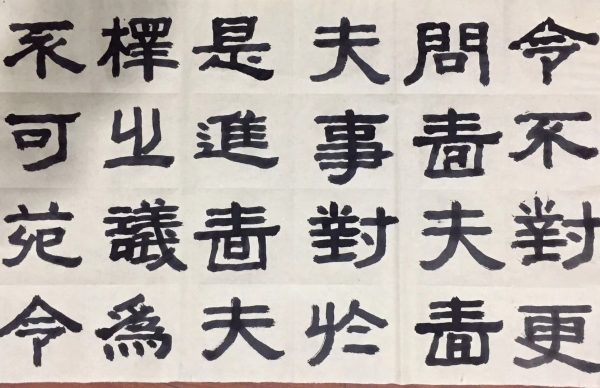 令不對更
問嗇夫嗇
夫事對於
是進嗇夫
檡之議爲
不可苑令